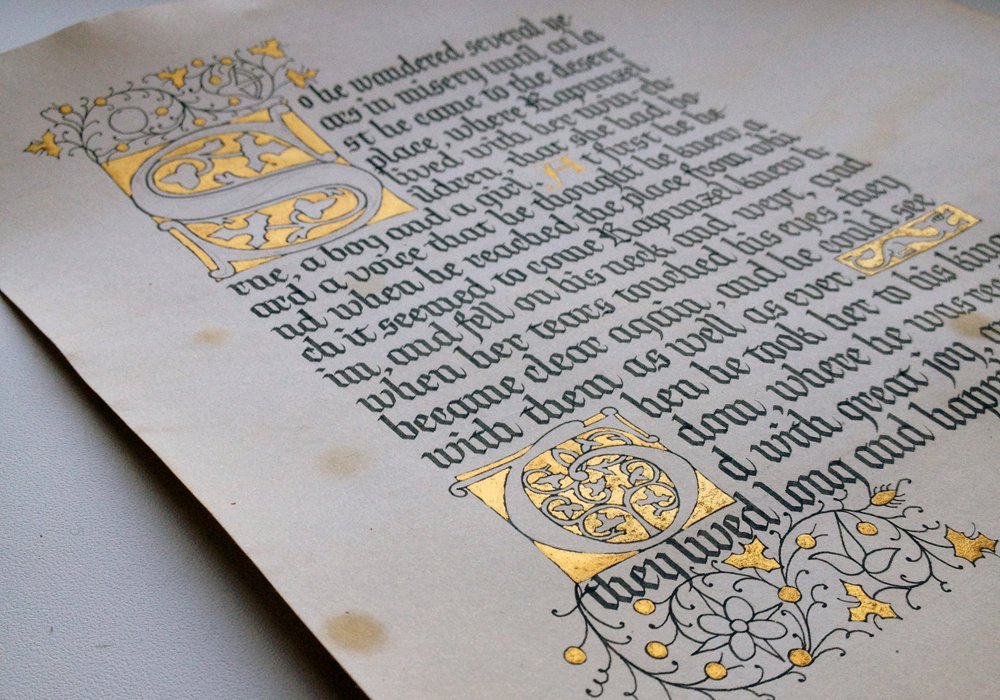 So he wandered several ye
ars in misery until at la
st he came to the desert
place, where Rapunzel
lived with her twin-ch-
ildren, that she had bo-
rne, a boy and a girl. At first he he-
ard a voice that he thought he knew, a
nd when he reached the place from whi
ch it seemed to come Rapunzel knew h
im, and fell on his neck and wept, and
when her tears touched his eyes they
became clear again, and he could see
with them as well as ever.
Then he took her to his king
dom, where he was
d with great joy,
they lived long and happi